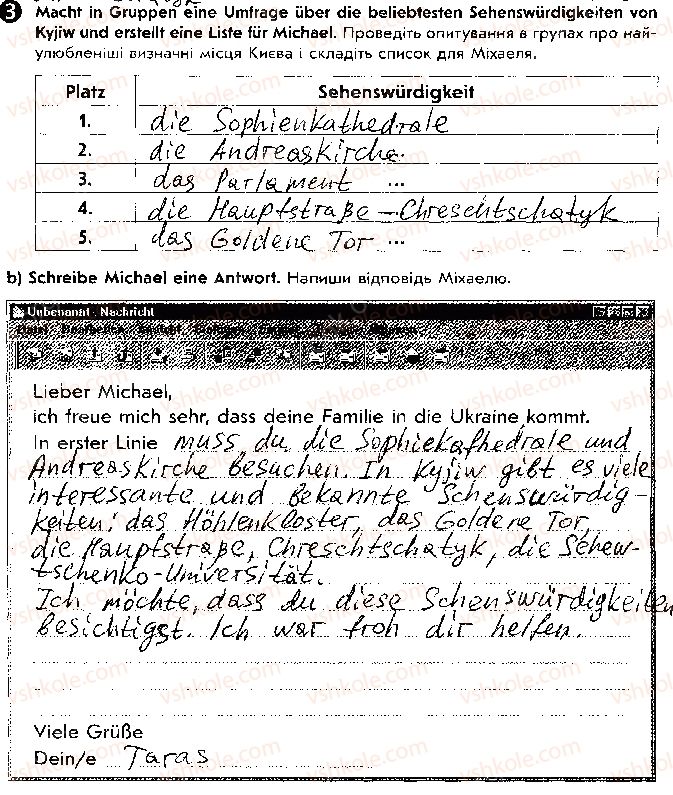 3 Macht in Gruppen eine Umfrage über die beliebtesten Sehenswürdigkeiten von
Kyjiw und erstellt eine Liste für Michael. Проведіть опитування в групах про най-
улюбленіші визначні місця Києва і складіть список для Міхаеля.
Platz Sehenswürdigkeit
1. die Sophienkathedrale
2. die Andreaskirche.
3. das Parlament ...
4. die Hauptstraße – Chreschtschatyk
5. das Goldene Tor ...
b) Schreibe Michael eine Antwort. Напиши відповідь Міхаелю.
Unbenannt - Nachricht
Lieber Michael,
ich freue mich sehr, dass deine Familie in die Ukraine kommt.
In erster Linie muss du die Sophiekathedrale und
Andreaskirche besuchen. In Kyjiw gibt es viele
interessante und bekannte Sehenswürdig-
keiten: das Höhlenkloster, das Goldene Tor,
die Hauptstraße, Chreschtschatyk, die Schew-
tschenko-Universität.
Ich möchte, dass du diese Sehenswürdigkeiten
besichtigst. Ich war froh dir helfen.
Viele Grüße
Dein/e Taras
vshkole.com